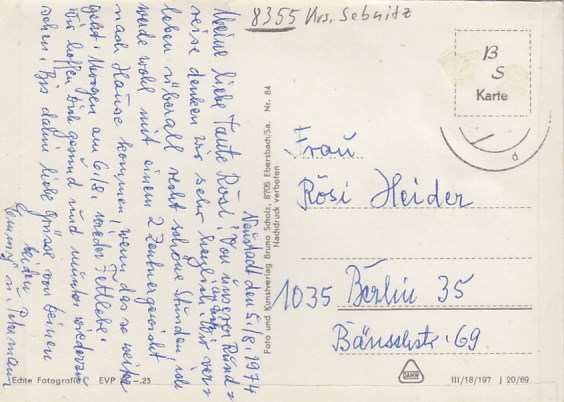 8355 Krs. Sebnitz
Neustadt den 5./8. 1974
Meine liebe Tante Rösi! Von unserer Rund=
reise denken wir sehr herzlich an Dich. Wir ver=
leben überall recht schöne Stunden, ich
werde wohl mit einem 2 Zentnergewicht
nach Hause kommen, wenn das so weiter
geht. Morgen am 6./8. wieder Fettlebe!
Wir hoffen Dich gesund und munter wiederzu=
sehen. Bis dahin liebe Grüsse von Deinen
beiden
B
S
Karte
Frau
Rösi Heider
1035 Berlin 35
Bänschstr. 69
Foto und Kunstverlag Bruno Scholz, 8705 Ebersbach/Sa. Nr. 84
Nachdruck verboten
Echte Fotografie EVP -.25
DAMW
III/18/197 J 20/69
d